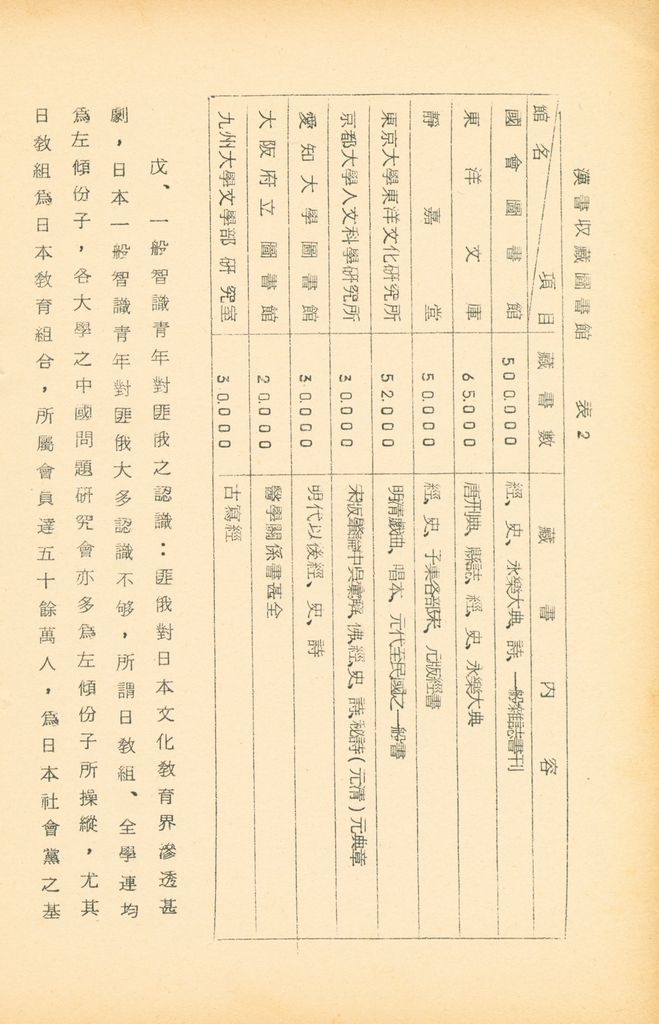 漢書收藏圖書館 表2
館名 項目 藏書數 藏書內容
國會圖書館 500.000 經、史、永樂大典、詩、一般雜誌書刊
東洋文庫 65.000 唐刑典、縣誌、經、史、永樂大典
靜嘉堂 50.000 經、史、子集各部宋、元版經書
東京大學東洋文化研究所 52.000 明清戲曲、唱本、元代至民國之一般書
京都大學人文科學研究所 30.000 佛、經、史、詩、秘詩(元清)元典章
愛知大學圖書館 30.000 明代以後經、史、詩
大阪府立圖書館 20.000 醫學關係書甚全
九州大學文學部研究室 30.000 古寫經
戊、一般智識青年對匪俄之認識：匪俄對日本文化教育界滲透甚
劇，日本一般智識青年對匪俄大多認識不够，所謂日教組、全學連均
爲左傾份子，各大學之中國問題研究會亦多爲左傾份子所操縱，尤其
日教組爲日本教育組合，所屬會員達五十餘萬人，爲日本社會黨之基